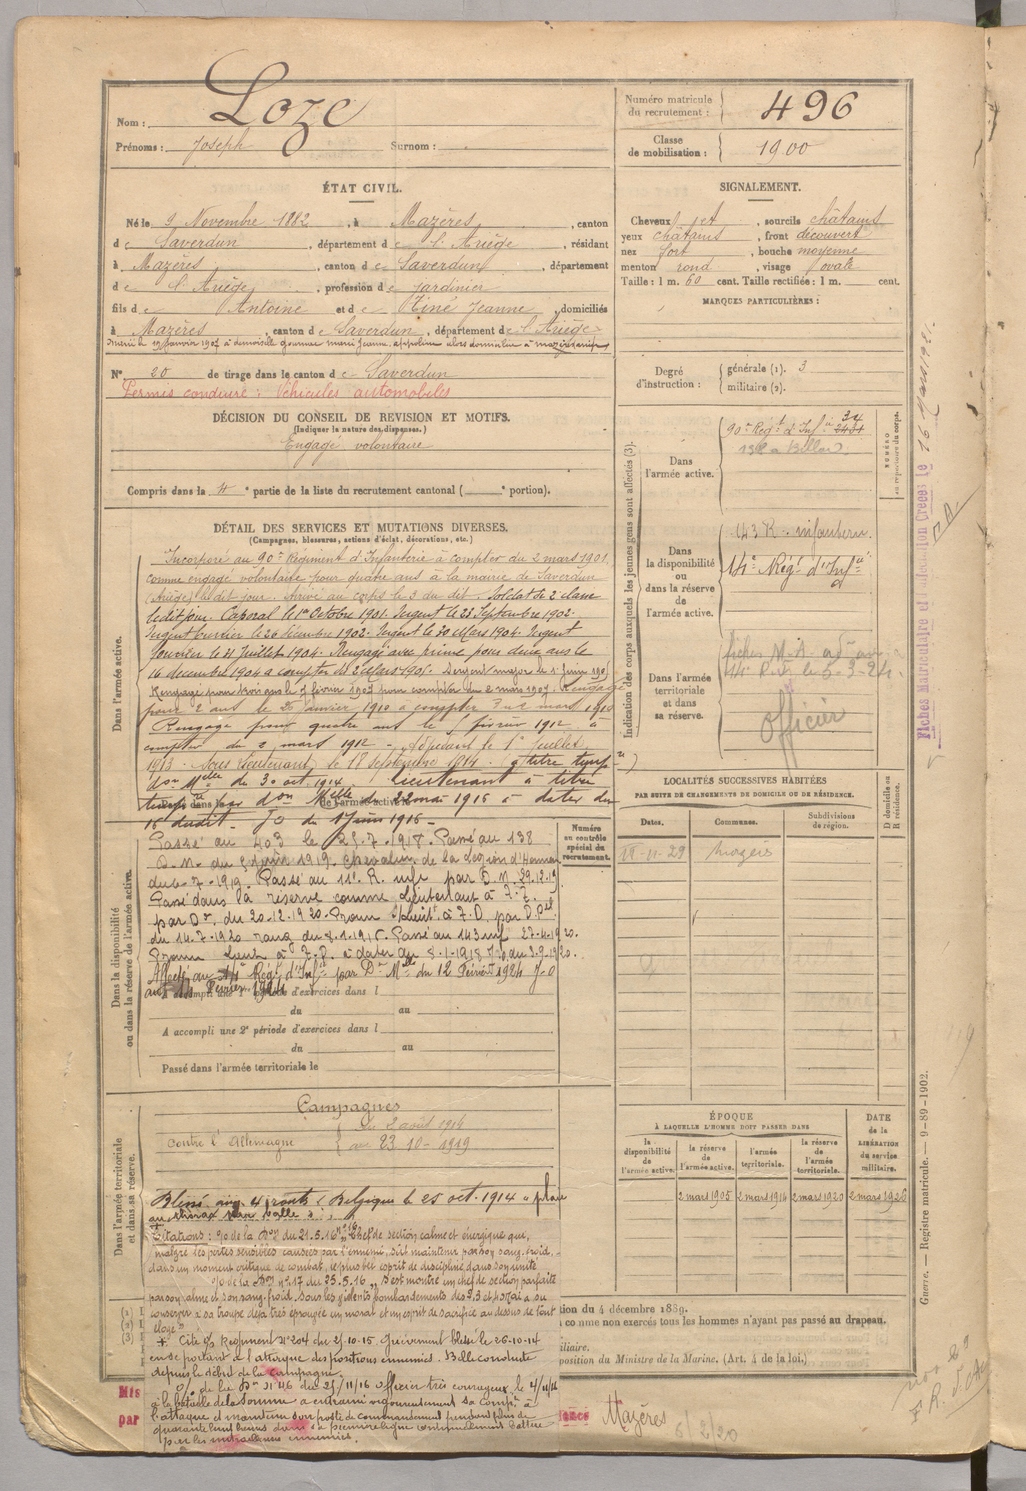 Nom : Loze
Prénoms : Joseph Surnom :
Numéro matricule du recrutement : 496
Classe de mobilisation : 1900
ÉTAT CIVIL.
Né le 9 Novembre 1882, à Mazères, canton
de Saverdun, département de l'Ariège, résidant
à Mazères, canton de Saverdun, département
de l'Ariège, profession de jardinier
fils de Antoine et de Tiné Jeanne, domiciliés
à Mazères, canton de Saverdun, département de l'Ariège
N° 20 de tirage dans le canton de Saverdun
Permis conduire : Véhicules automobiles
SIGNALEMENT.
Cheveux jet, sourcils châtains
yeux châtains, front découvert
nez fort, bouche moyenne
menton rond, visage ovale
Taille : 1 m. 60 cent. Taille rectifiée : 1 m. cent.
MARQUES PARTICULIÈRES :
Degré d'instruction : générale (1). 3
militaire (2).
DÉCISION DU CONSEIL DE REVISION ET MOTIFS.
(Indiquer la nature des dispenses.)
Engagé volontaire
Compris dans la 4e partie de la liste du recrutement cantonal ( e portion).
DÉTAIL DES SERVICES ET MUTATIONS DIVERSES.
(Campagnes, blessures, actions d'éclat, décorations, etc.)
Dans l'armée active.
Incorporé au 90e Régiment d'Infanterie à compter du 2 mars 1901,
comme engagé volontaire pour quatre ans à la mairie de Saverdun
(Ariège) ledit jour. Arrivé au corps le 3 du dit. Soldat de 2e classe
ledit jour. Caporal le 1er Octobre 1901. Sergent le 23 Septembre 1902.
Sergent fourrier le 26 décembre 1902. Sergent le 30 Mars 1904. Sergent
fourrier le 21 Juillet 1904. Rengagé avec prime pour deux ans le
16 décembre 1904 à compter du 2 Mars 1905. Sergent major le
Rengagé pour trois ans le 7 février 1907 pour compter du 2 mars 1907. Rengagé
pour 2 ans le janvier 1910 à compter du 2 mars 1910
Rengagé pour quatre ans le février 1912 à
compter du 2 mars 1912 - Adjudant le 1er Juillet
1913. Sous Lieutenant le 18 Septembre 1914. (à titre tempre)
don Melle du 30 oct. 1914 Lieutenant à titre
tempre par don Melle du 22 mai 1916 à dater du
16 dudit. JO du 1er juin 1916 -
Dans la disponibilité ou dans la réserve de l'armée active.
Passé au 403 le 25.7.1918. Passé au 138
D.M. du 1919. Chevalier de la Légion d'Honneur
du 6.7.1919. Passé au 11e R. infie par D.M. 29.12.19
Passé dans la réserve comme Lieutenant à T.T.
par Don du 20-12-1920. Promu S/Lieut. à T.D. par D. Pel
du 14.7.1920 rang du 8.1.1916. Passé au 143 inf 27.4.1920.
Promu Lieut à T.D. à dater du 8-1-1918 J.O du 3.9.1920.
Affecté au 14e Régt d'Infie par Don Melle du 12 Février 1924 J.O
du 14 Février 1924
A accompli une 1re période d'exercices dans l
du au
A accompli une 2e période d'exercices dans l
du au
Passé dans l'armée territoriale le
Numéro au contrôle spécial du recrutement.
Indication des corps auxquels les jeunes gens sont affectés (3).
NUMÉRO au répertoire du corps.
Dans l'armée active.
90e Régt d'Infie 34
Dans la disponibilité ou dans la réserve de l'armée active.
143 R. infanterie.
14e Régt d'Infie
Dans l'armée territoriale et dans sa réserve.
14e R.I. le 5-3-24.
Officier
Fiches Matriculaire et d'Affectation Créées le 16 Mars 1921.
LOCALITÉS SUCCESSIVES HABITÉES
PAR SUITE DE CHANGEMENTS DE DOMICILE OU DE RÉSIDENCE.
Dates. Communes. Subdivisions de région. D domicile ou R résidence.
ÉPOQUE
À LAQUELLE L'HOMME DOIT PASSER DANS
la disponibilité de l'armée active. la réserve de l'armée active. l'armée territoriale. la réserve de l'armée territoriale.
DATE de la LIBÉRATION du service militaire.
2 mars 1905 2 mars 1914 2 mars 1920 2 mars 1926
Dans l'armée territoriale et dans sa réserve.
Campagnes
Contre l'Allemagne du 2 août 1914
au 23-10-1919
Blessé aux 4 ponts (Belgique) le 25 oct. 1914 « plaie
au thorax par balle »
Citations : de la Don du 21.5.16 Chef de section calme et énergique qui,
malgré les pertes sensibles causées par l'ennemi, sut maintenir par son sang-froid,
dans un moment critique du combat, le plus bel esprit de discipline dans son unité
de la Don n° 17 du 25.5.16 S'est montré un chef de section parfait
par son calme et son sang froid. Sous les violents bombardements des 3 et 4 mai a su
conserver à sa troupe déjà très éprouvée un moral et un esprit de sacrifice au dessus de tout
éloge
+ Cité o/ Régiment N° 204 du 21.10.15 Grièvement blessé le 26-10-14
en se portant à l'attaque des positions ennemies. Belle conduite
depuis le début de la campagne.
o/ de la Don N° 46 du 25/11/16 Officier très courageux, le 4/11/16
à la bataille de la Somme a entraîné vigoureusement sa Compie à
l'attaque et maintenu son poste de commandement pendant plus de
quarante huit heures dans sa première ligne continuellement battue
par les mitrailleuses ennemies.
tion du 4 décembre 1889.
comme non exercés tous les hommes n'ayant pas passé au drapeau.
iliaire.
position du Ministre de la Marine. (Art. 4 de la loi.)
Mis
par
Mazères
6/2/20
Guerre. — Registre matricule. — 9-89-1902.